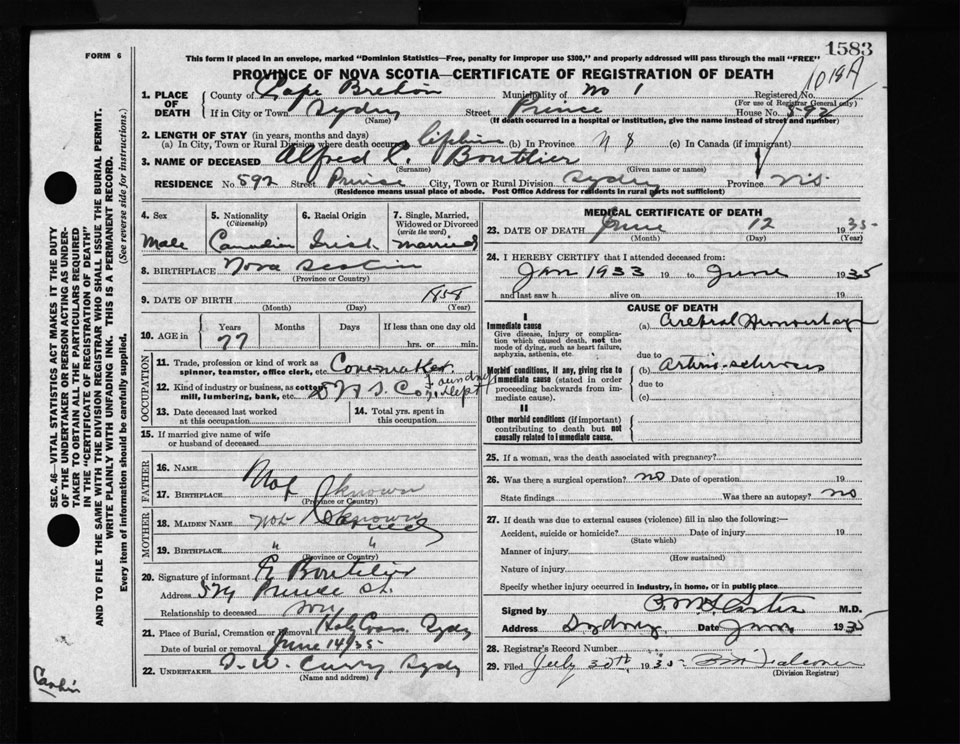 1583
FORM 6
This form if placed in an envelope, marked "Dominion Statistics—Free, penalty for improper use $300," and properly addressed will pass through the mail "FREE"
PROVINCE OF NOVA SCOTIA—CERTIFICATE OF REGISTRATION OF DEATH
1018A
1. PLACE OF DEATH
County of Cape Breton Municipality of No 1 Registered No.
(For use of Registrar General only)
If in City or Town Sydney Street Prince House No. 592
(Name) (If death occurred in a hospital or institution, give the name instead of street and number)
2. LENGTH OF STAY (in years, months and days)
(a) In City, Town or Rural Division where death occurred lifetime (b) In Province N S (c) In Canada (if immigrant)
3. NAME OF DECEASED Alfred C. Boutlier
(Surname) (Given name or names)
RESIDENCE No. 592 Street Prince City, Town or Rural Division Sydney Province N.S.
(Residence means usual place of abode. Post Office Address for residents in rural parts not sufficient)
4. Sex
Male
5. Nationality
(Citizenship)
Canadian
6. Racial Origin
Irish
7. Single, Married, Widowed or Divorced
(write the word)
married
8. BIRTHPLACE Nova Scotia
(Province or Country)
9. DATE OF BIRTH 1858
(Month) (Day) (Year)
10. AGE in
Years Months Days If less than one day old
77 hrs. or min.
OCCUPATION
11. Trade, profession or kind of work as spinner, teamster, office clerk, etc. Coremaker
12. Kind of industry or business, as cotton mill, lumbering, bank, etc. D I S Co. Foundry Dept
13. Date deceased last worked at this occupation
14. Total yrs. spent in this occupation
15. If married give name of wife or husband of deceased
FATHER
16. NAME Not Known
17. BIRTHPLACE
(Province or Country)
MOTHER
18. MAIDEN NAME Not Known
19. BIRTHPLACE " "
(Province or Country)
20. Signature of informant Boutlier
Address Prince St.
Relationship to deceased Son
21. Place of Burial, Cremation or Removal Holy Cross Sydney
Date of burial or removal June 14/35
22. UNDERTAKER Curry Sydney
(Name and address)
MEDICAL CERTIFICATE OF DEATH
23. DATE OF DEATH June 12 1935
(Month) (Day) (Year)
24. I HEREBY CERTIFY that I attended deceased from:
Jan 1933 19 to June 1935
and last saw h alive on 19
CAUSE OF DEATH
I
Immediate cause
Give disease, injury or complication which caused death, not the mode of dying, such as heart failure, asphyxia, asthenia, etc.
(a) Cerebral Hemorrhage
due to
Morbid conditions, if any, giving rise to immediate cause (stated in order proceeding backwards from immediate cause).
(b) Arterio-sclerosis
due to
(c)
II
Other morbid conditions (if important) contributing to death but not causally related to immediate cause.
25. If a woman, was the death associated with pregnancy?
26. Was there a surgical operation? no Date of operation 19
State findings Was there an autopsy? no
27. If death was due to external causes (violence) fill in also the following:—
Accident, suicide or homicide? Date of injury 19
(State which)
Manner of injury
(How sustained)
Nature of injury
Specify whether injury occurred in industry, in home, or in public place
Signed by M.D.
Address Sydney Date June 1935
28. Registrar's Record Number
29. Filed July 30th 1935
(Division Registrar)
SEC. 46—VITAL STATISTICS ACT MAKES IT THE DUTY OF THE UNDERTAKER OR PERSON ACTING AS UNDERTAKER TO OBTAIN ALL THE PARTICULARS REQUIRED IN THE "CERTIFICATE OF REGISTRATION OF DEATH"
AND TO FILE THE SAME WITH THE DIVISION REGISTRAR WHO SHALL ISSUE THE BURIAL PERMIT.
WRITE PLAINLY WITH UNFADING INK. THIS IS A PERMANENT RECORD.
Every item of information should be carefully supplied. (See reverse side for instructions.)